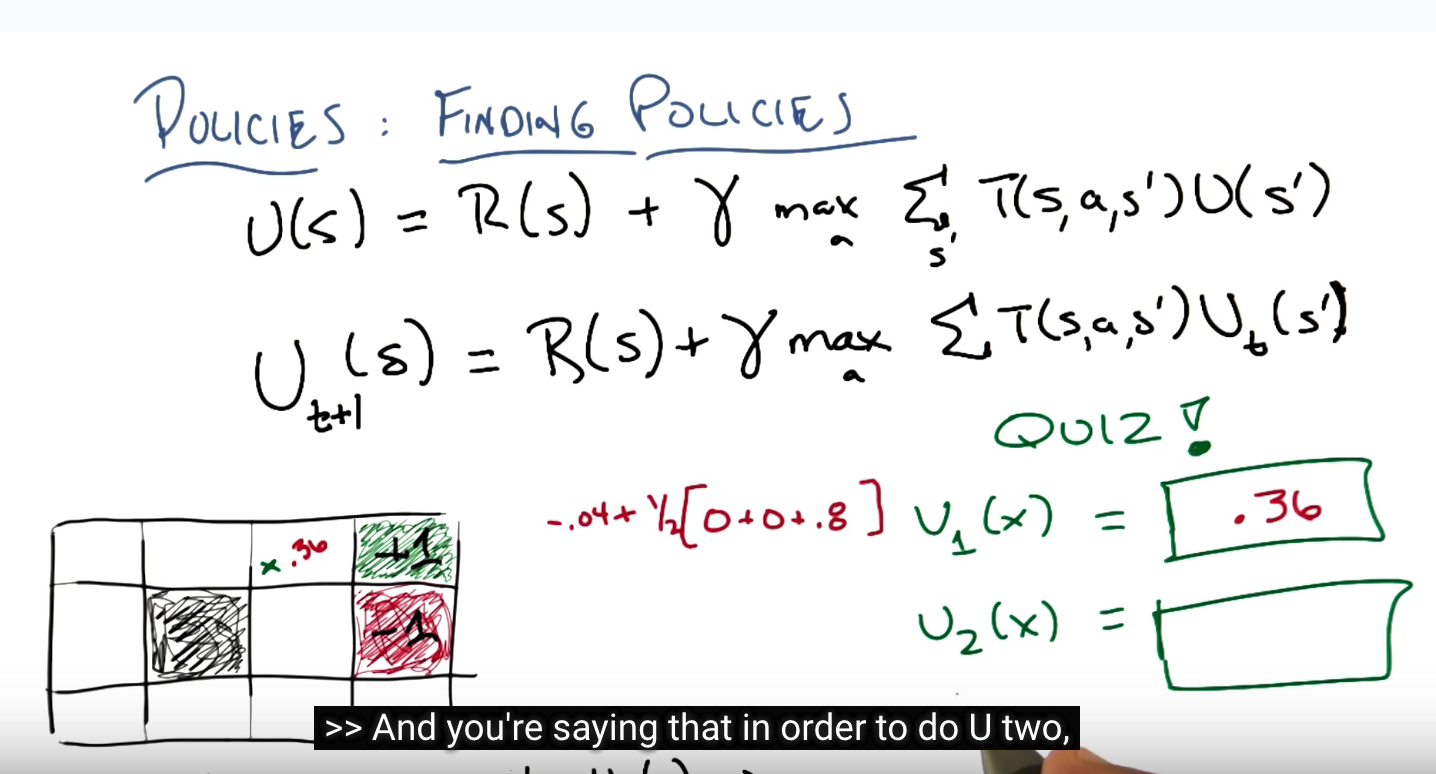 POLICIES : FINDING POLICIES
U(s) = R(s) + γ max_a Σ_s' T(s,a,s') U(s')
U_t+1(s) = R(s) + γ max_a Σ T(s,a,s') U_t(s')
QUIZ!
-.04 + 1/2[0+0+.8] U_1(x) = .36
x .36 +1
U_2(x) =
-1
>> And you're saying that in order to do U two,